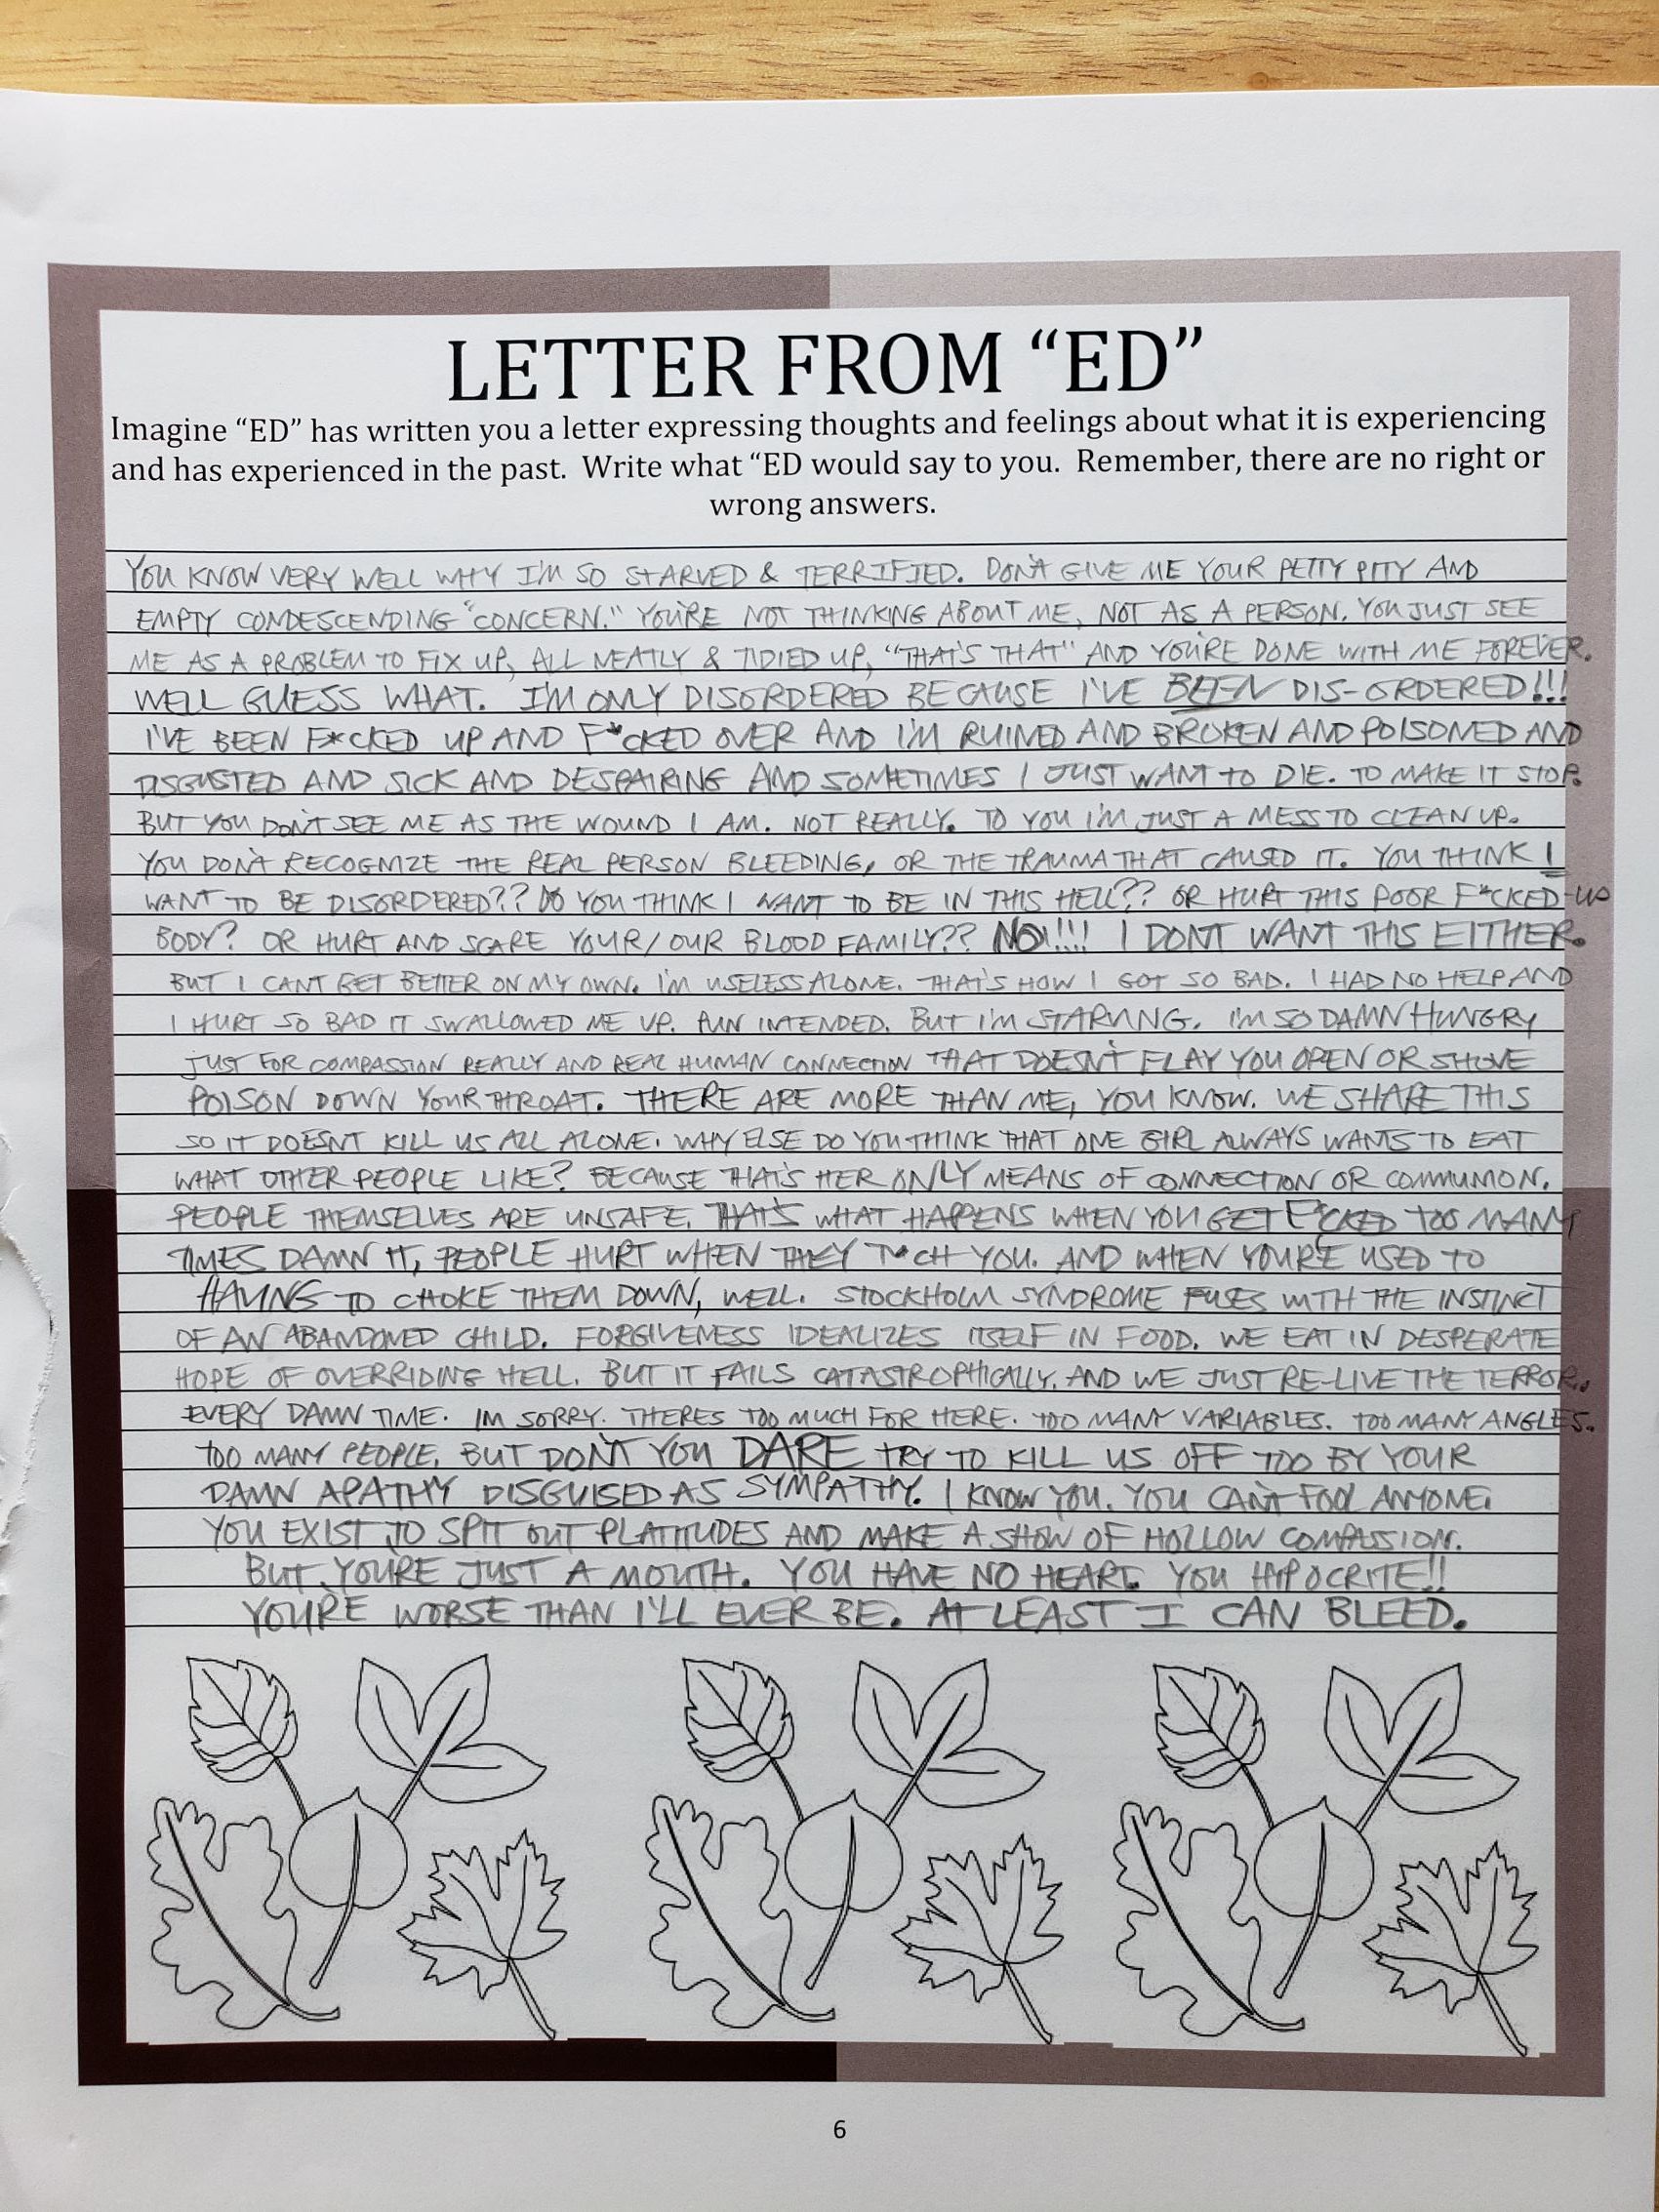 LETTER FROM “ED”
Imagine “ED” has written you a letter expressing thoughts and feelings about what it is experiencing
and has experienced in the past.  Write what “ED would say to you.  Remember, there are no right or
wrong answers.
YOU KNOW VERY WELL WHY I'M SO STARVED & TERRIFIED. DON'T GIVE ME YOUR PETTY PITY AND
EMPTY CONDESCENDING "CONCERN." YOU'RE NOT THINKING ABOUT ME, NOT AS A PERSON. YOU JUST SEE
ME AS A PROBLEM TO FIX UP, ALL NEATLY & TIDIED UP, "THAT'S THAT" AND YOU'RE DONE WITH ME FOREVER.
WELL GUESS WHAT. I'M ONLY DISORDERED BECAUSE I'VE BEEN DIS-ORDERED!!!
I'VE BEEN F*CKED UP AND F*CKED OVER AND I'M RUINED AND BROKEN AND POISONED AND
DISGUSTED AND SICK AND DESPAIRING AND SOMETIMES I JUST WANT TO DIE. TO MAKE IT STOP.
BUT YOU DON'T SEE ME AS THE WOUND I AM. NOT REALLY. TO YOU I'M JUST A MESS TO CLEAN UP.
YOU DON'T RECOGNIZE THE REAL PERSON BLEEDING, OR THE TRAUMA THAT CAUSED IT. YOU THINK I
WANT TO BE DISORDERED?? DO YOU THINK I WANT TO BE IN THIS HELL?? OR HURT THIS POOR F*CKED-UP
BODY? OR HURT AND SCARE YOUR/OUR BLOOD FAMILY?? NO!!!! I DONT WANT THIS EITHER.
BUT I CANT GET BETTER ON MY OWN. I'M USELESS ALONE. THAT'S HOW I GOT SO BAD. I HAD NO HELP AND
I HURT SO BAD IT SWALLOWED ME UP. PUN INTENDED. BUT I'M STARVING. I'M SO DAMN HUNGRY
JUST FOR COMPASSION REALLY AND REAL HUMAN CONNECTION THAT DOESN'T FLAY YOU OPEN OR SHOVE
POISON DOWN YOUR THROAT. THERE ARE MORE THAN ME, YOU KNOW. WE SHARE THIS
SO IT DOESNT KILL US ALL ALONE. WHY ELSE DO YOU THINK THAT ONE GIRL ALWAYS WANTS TO EAT
WHAT OTHER PEOPLE LIKE? BECAUSE THAT'S HER ONLY MEANS OF CONNECTION OR COMMUNION.
PEOPLE THEMSELVES ARE UNSAFE. THAT'S WHAT HAPPENS WHEN YOU GET F*CKED TOO MANY
TIMES DAMN IT, PEOPLE HURT WHEN THEY T*CH YOU. AND WHEN YOU'RE USED TO
HAVING TO CHOKE THEM DOWN, WELL. STOCKHOLM SYNDROME FUSES WITH THE INSTINCT
OF AN ABANDONED CHILD. FORGIVENESS IDEALIZES ITSELF IN FOOD. WE EAT IN DESPERATE
HOPE OF OVERRIDING HELL. BUT IT FAILS CATASTROPHICALLY. AND WE JUST RE-LIVE THE TERROR.
EVERY DAMN TIME. IM SORRY. THERES TOO MUCH FOR HERE. TOO MANY VARIABLES. TOO MANY ANGLES.
TOO MANY PEOPLE. BUT DON'T YOU DARE TRY TO KILL US OFF TOO BY YOUR
DAMN APATHY DISGUISED AS SYMPATHY. I KNOW YOU. YOU CAN'T FOOL ANYONE.
YOU EXIST TO SPIT OUT PLATITUDES AND MAKE A SHOW OF HOLLOW COMPASSION.
BUT YOU'RE JUST A MOUTH. YOU HAVE NO HEART. YOU HYPOCRITE!!
YOU'RE WORSE THAN I'LL EVER BE. AT LEAST I CAN BLEED.
6